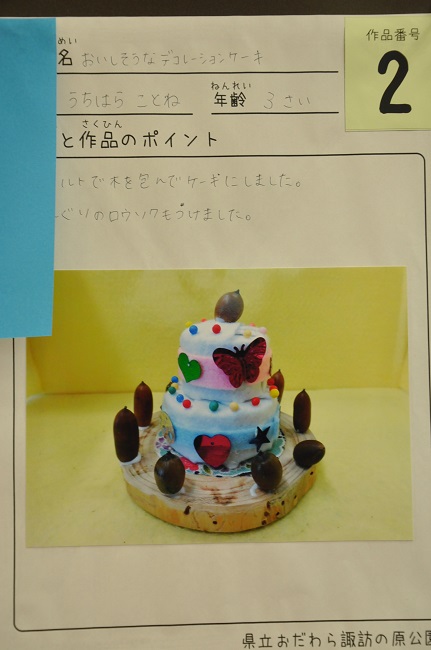 作品番号
2
めい
名 おいしそうなデコレーションケーキ
ねんれい
うちはら ことね 年齢 3さい
さくひん
と作品のポイント
ルトで木を包んでケーキにしました。
ぐりのロウソクもつけました。
県立おだわら諏訪の原公園